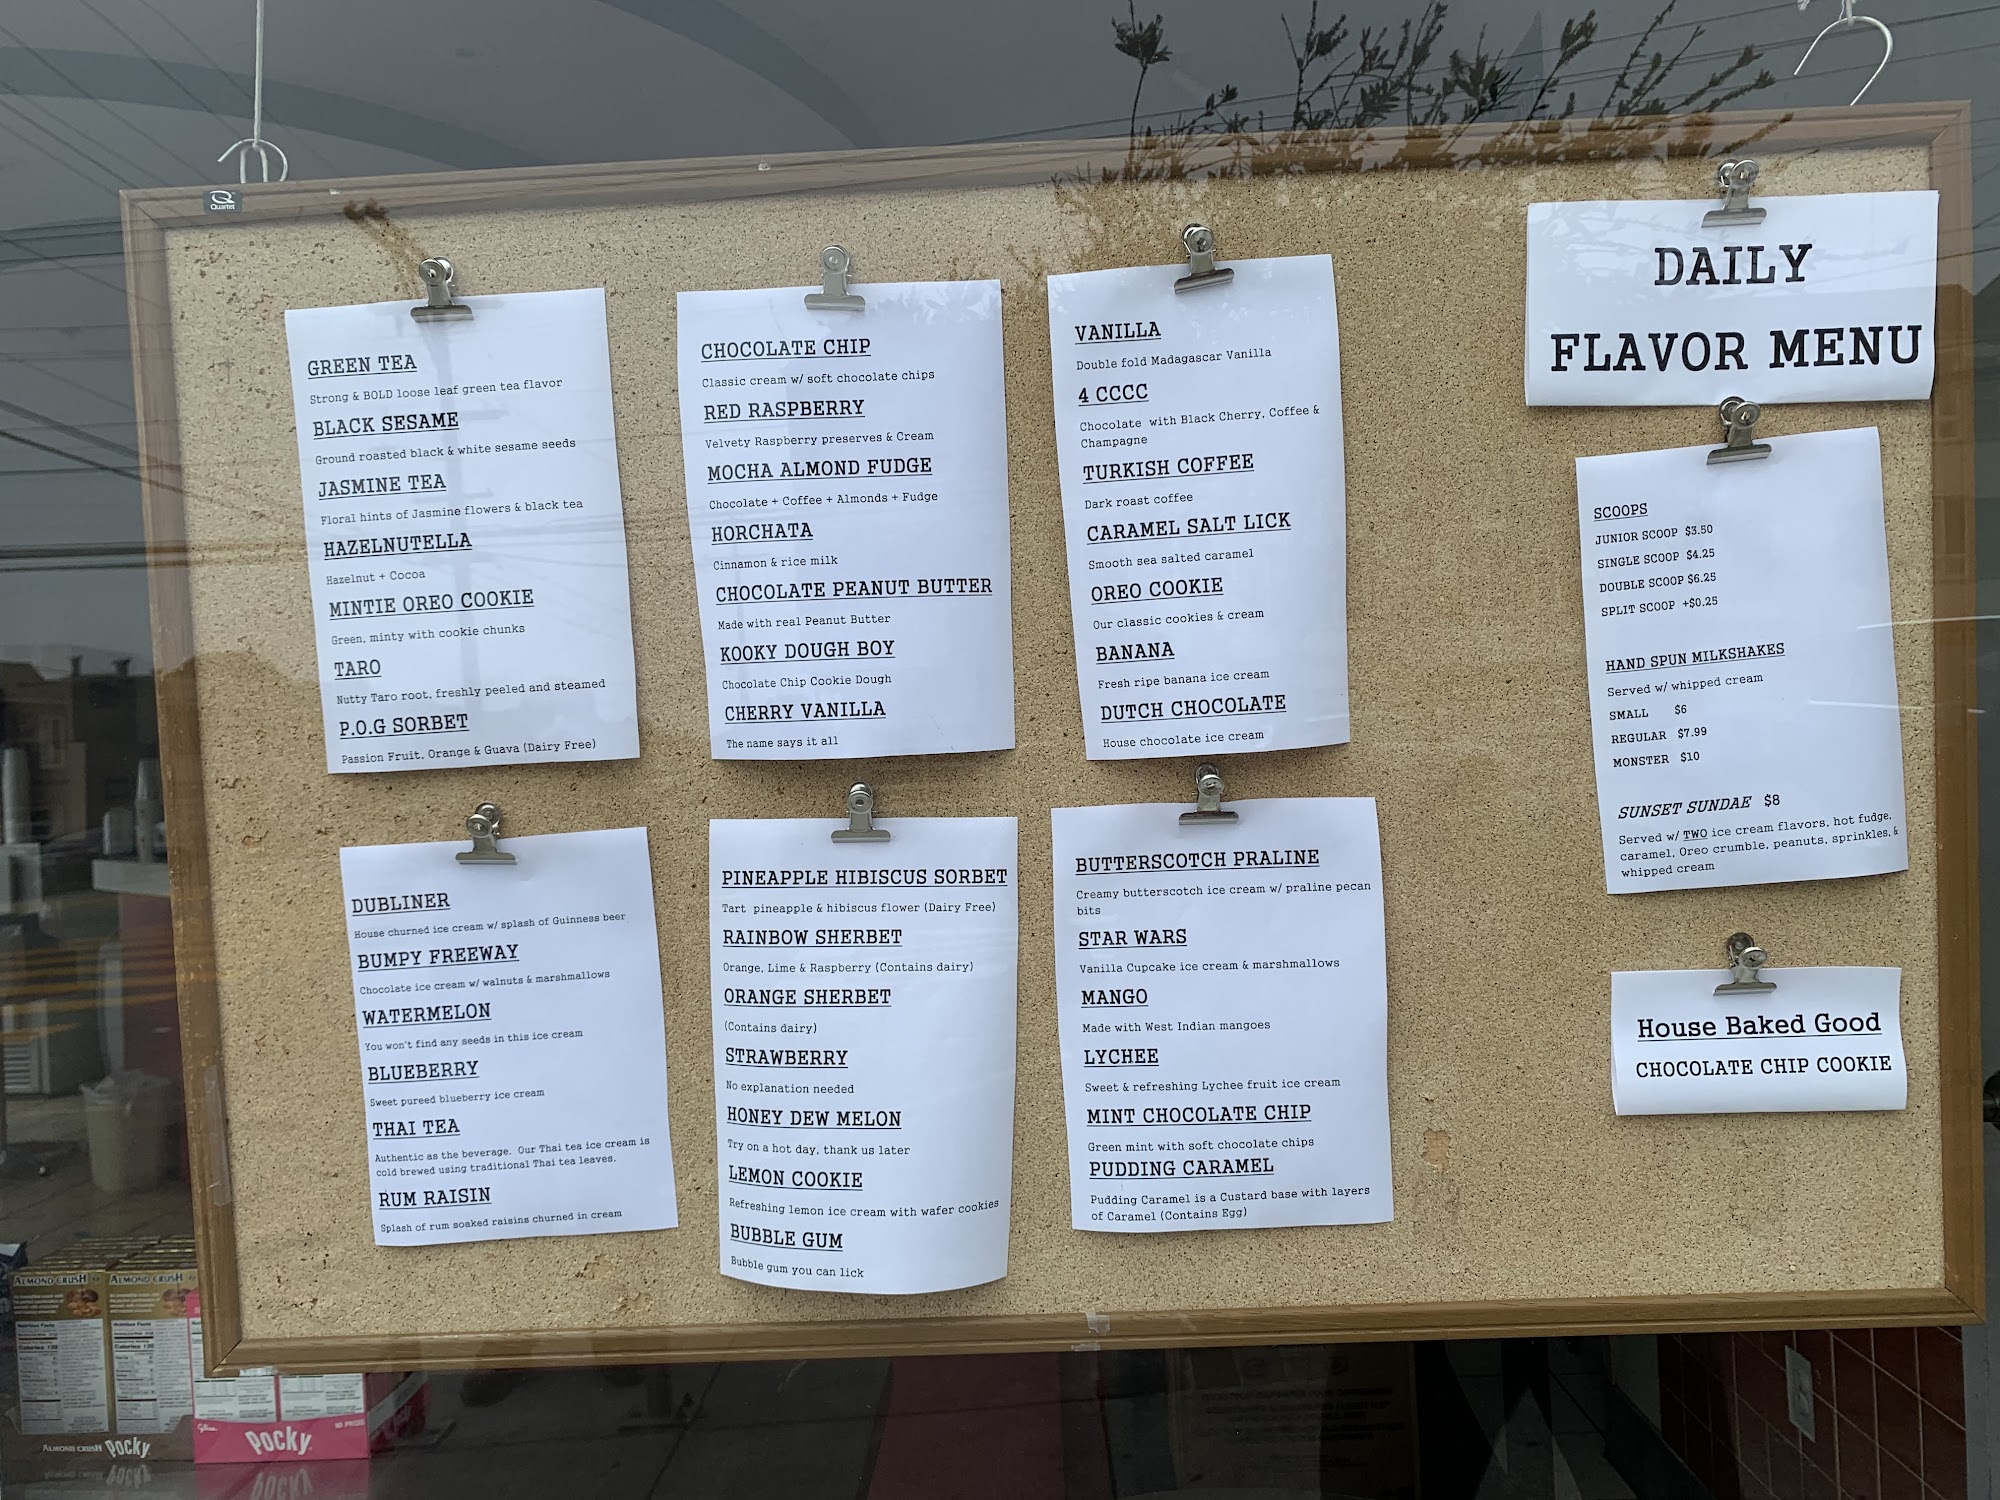 Quartet
DAILY
FLAVOR MENU
GREEN TEA
Strong & BOLD loose leaf green tea flavor
BLACK SESAME
Ground roasted black & white sesame seeds
JASMINE TEA
Floral hints of Jasmine flowers & black tea
HAZELNUTELLA
Hazelnut + Cocoa
MINTIE OREO COOKIE
Green, minty with cookie chunks
TARO
Nutty Taro root, freshly peeled and steamed
P.O.G SORBET
Passion Fruit, Orange & Guava (Dairy Free)
CHOCOLATE CHIP
Classic cream w/ soft chocolate chips
RED RASPBERRY
Velvety Raspberry preserves & Cream
MOCHA ALMOND FUDGE
Chocolate + Coffee + Almonds + Fudge
HORCHATA
Cinnamon & rice milk
CHOCOLATE PEANUT BUTTER
Made with real Peanut Butter
KOOKY DOUGH BOY
Chocolate Chip Cookie Dough
CHERRY VANILLA
The name says it all
VANILLA
Double fold Madagascar Vanilla
4 CCCC
Chocolate with Black Cherry, Coffee &
Champagne
TURKISH COFFEE
Dark roast coffee
CARAMEL SALT LICK
Smooth sea salted caramel
OREO COOKIE
Our classic cookies & cream
BANANA
Fresh ripe banana ice cream
DUTCH CHOCOLATE
House chocolate ice cream
SCOOPS
JUNIOR SCOOP $3.50
SINGLE SCOOP $4.25
DOUBLE SCOOP $6.25
SPLIT SCOOP +$0.25
HAND SPUN MILKSHAKES
Served w/ whipped cream
SMALL $6
REGULAR $7.99
MONSTER $10
SUNSET SUNDAE $8
Served w/ TWO ice cream flavors, hot fudge,
caramel, Oreo crumble, peanuts, sprinkles, &
whipped cream
DUBLINER
House churned ice cream w/ splash of Guinness beer
BUMPY FREEWAY
Chocolate ice cream w/ walnuts & marshmallows
WATERMELON
You won't find any seeds in this ice cream
BLUEBERRY
Sweet pureed blueberry ice cream
THAI TEA
Authentic as the beverage. Our Thai tea ice cream is
cold brewed using traditional Thai tea leaves.
RUM RAISIN
Splash of rum soaked raisins churned in cream
PINEAPPLE HIBISCUS SORBET
Tart pineapple & hibiscus flower (Dairy Free)
RAINBOW SHERBET
Orange, Lime & Raspberry (Contains dairy)
ORANGE SHERBET
(Contains dairy)
STRAWBERRY
No explanation needed
HONEY DEW MELON
Try on a hot day, thank us later
LEMON COOKIE
Refreshing lemon ice cream with wafer cookies
BUBBLE GUM
Bubble gum you can lick
BUTTERSCOTCH PRALINE
Creamy butterscotch ice cream w/ praline pecan
bits
STAR WARS
Vanilla Cupcake ice cream & marshmallows
MANGO
Made with West Indian mangoes
LYCHEE
Sweet & refreshing Lychee fruit ice cream
MINT CHOCOLATE CHIP
Green mint with soft chocolate chips
PUDDING CARAMEL
Pudding Caramel is a Custard base with layers
of Caramel (Contains Egg)
House Baked Good
CHOCOLATE CHIP COOKIE
ALMOND CRUSH ALMOND CRUSH
Nutrition Facts Nutrition Facts
ALMOND CRUSH Pocky
Glico
Pocky